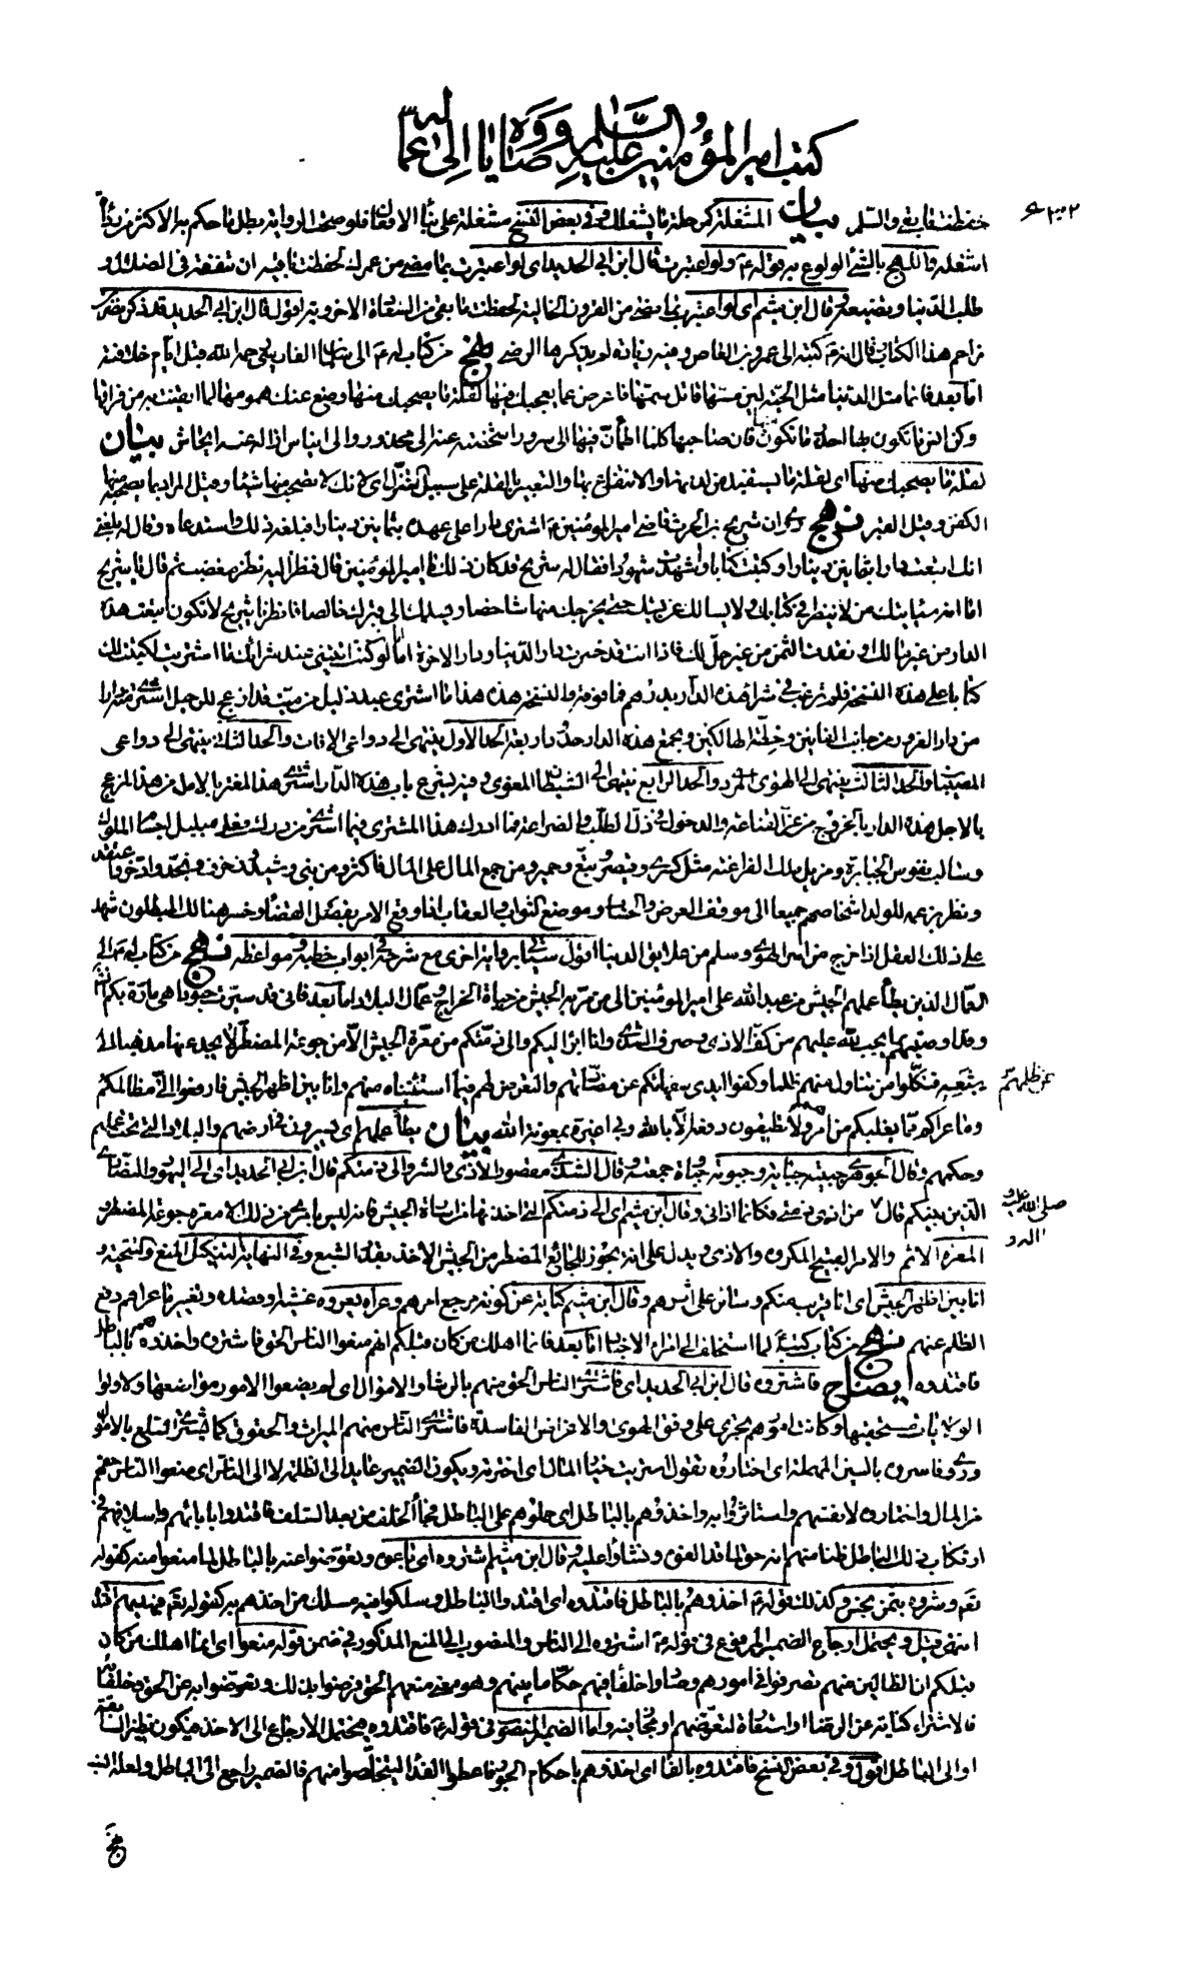 كتب امير المؤمنين عليه السلام ووصاياه الى عماله
حفظت ما بقي والسلام بيان المشغلة كمرحلة ما يشغلك وفي بعض النسخ مشغلة على بناء الافعال فلو صحت الرواية بطل ما حكم به الاكثر من رداءة
اشغله واللهج بالشيء الولوع به قوله ع ولو اعتبرت قال ابن ابي الحديد اي لو اعتبرت بما مضى من عمرك لحفظت باقيه ان تنفقه في الضلال و
طلب الدنيا وتضيعه وقال ابن ميثم اي لو اعتبرت بما مضى من القرون الخالية لحفظت ما بقي من السعادة الاخروية اقول قال ابن ابي الحديد قد ذكر نصر بن
مزاحم هذا الكتاب وقال انه ع كتبه الى عمرو بن العاص وفيه زيادة لم يذكرها الرضي نهج من كتاب له ع الى سلمان الفارسي رحمه الله قبل ايام خلافته
اما بعد فانما مثل الدنيا مثل الحية لين مسها قاتل سمها فاعرض عما يعجبك فيها لقلة ما يصحبك منها وضع عنك همومها لما ايقنت به من فراقها
وكن انس ما تكون بها احذر ما تكون منها فان صاحبها كلما اطمأن فيها الى سرور اشخصته عنه الى محذور والى ايناس ازاله عنه ايحاش بيان
لقلة ما يصحبك منها اي لقلة ما يستفيد من لذتها والانتفاع بها والتعبير بالقلة على سبيل التنزل اي لانك لا تصحب منها شيئا وقيل المراد بما يصحبه منها
الكفن وقيل القبر نهج روي ان شريح بن الحرث قاضي امير المؤمنين ع اشترى دارا على عهده بثمانين دينارا فبلغه ذلك واستدعاه وقال له بلغني
انك ابتعت دارا بثمانين دينارا وكتبت كتابا واشهدت شهودا فقال له شريح قد كان ذلك يا امير المؤمنين قال فنظر اليه نظر مغضب ثم قال يا شريح
اما انه سيأتيك من لا ينظر في كتابك ولا يسالك عن بينتك حتى يخرجك منها شاخصا ويسلمك الى قبرك خالصا فانظر يا شريح لا تكون ابتعت هذه
الدار من غير مالك او نقدت الثمن من غير حلالك فاذا انت قد خسرت دار الدنيا ودار الاخرة اما انك لو كنت اتيتني عند شرائك ما اشتريت لكتبت لك
كتابا على هذه النسخة فلم ترغب في شراء هذه الدار بدرهم فما فوقه والنسخة هذه هذا ما اشترى عبد ذليل من ميت قد ازعج للرحيل اشترى منه دارا
من دار الغرور من جانب الفانين وخطة الهالكين وتجمع هذه الدار حدود اربعة الحد الاول ينتهي الى دواعي الافات والحد الثاني ينتهي الى دواعي
المصيبات والحد الثالث ينتهي الى الهوى المردي والحد الرابع ينتهي الى الشيطان المغوي وفيه يشرع باب هذه الدار اشترى هذا المغتر بالامل من هذا المزعج
بالاجل هذه الدار بالخروج من عز القناعة والدخول في ذل الطلب والضراعة فما ادرك هذا المشتري فيما اشترى من درك فعلى مبلبل اجسام الملوك
وسالب نفوس الجبابرة ومزيل ملك الفراعنة مثل كسرى وقيصر وتبع وحمير ومن جمع المال على المال فاكثر ومن بنى وشيد وزخرف ونجد وادخر واعتقد
ونظر بزعمه للولد اشخاصهم جميعا الى موقف العرض والحساب وموضع الثواب والعقاب اذا وقع الامر بفصل القضاء وخسر هنالك المبطلون شهد
على ذلك العقل اذا خرج من اسر الهوى وسلم من علايق الدنيا اقول سيأتي برواية اخرى مع شرحه في ابواب خطبه ومواعظه نهج من كتاب له ع الى
العمال الذين يطأ عملهم الجيش من عبد الله علي امير المؤمنين الى من مر به الجيش من جباة الخراج وعمال البلاد اما بعد فاني قد سيرت جنودا هي مارة بكم ان شاء الله
وقد اوصيتهم بما يجب لله عليهم من كف الاذى وصرف الشذى وانا ابرأ اليكم والى ذمتكم من معرة الجيش الا من جوعة المضطر لا يجد عنها مذهبا الى
شبعه فنكلوا من تناول منهم ظلما عن ظلمهم وكفوا ايدي سفهائكم عن مضادتهم والتعرض لهم فيما استثنيناه منهم وانا بين اظهر الجيش فارفعوا الي مظالمكم
وما عراكم مما يغلبكم من امرهم ولا تطيقون دفعه الا بالله وبي اغيره بمعونة الله بيان يطأ عملهم اي يسيرون في ارضهم والبلاد التي تحت عملهم
وحكمهم وقال الجوهري جبيته جباية وجبوته جباوة جمعته وقال الشذى مقصورا الاذى والشر والى ذمتكم قال ابن ابي الحديد اي الى اليهود والنصارى
الذين بينكم قال ع من اذى ذميا فكانما اذاني وقال ابن ميثم اي الى ذمتكم التي اخذتها من اساءة الجيش فانه ليس بامري من ذلك الا معرة جوعة المضطر و
صلى الله عليه واله
المعرة الاثم والامر القبيح المكروه والاذى ويدل على انه يجوز للجائع المضطر من الجيش الاخذ بقدر الشبع وفي النهاية التنكيل المنع والتنحية و
انا بين اظهر الجيش اي انا قريب منكم وسائر على اثرهم وقال ابن ميثم كناية عن كونه مرجع امرهم وعراه يعروه غشيه او قصده وتغيير ما عراهم دفع
الظلم عنهم نهج من كتاب كتبه ع لما استخلف الى امراء الاجناد اما بعد فانما اهلك من كان قبلكم انهم منعوا الناس الحق فاشتروه واخذوهم بالباطل
فاقتدوه ايضاح فاشتروه قال ابن ابي الحديد اي فاشترى الناس الحق منهم بالرشا والاموال اي لم يضعوا الامور مواضعها ولا ولوا
الولايات مستحقيها وكانت امورهم تجري على وفق الهوى والاغراض الفاسدة فاشترى الناس منهم الميراث والحقوق كما تشترى السلع بالاموال
وروي فاستروه بالسين المهملة اي اختاروه تقول استريت خيار المال اي اخترته ويكون الضمير عايدا الى الظلمة لا الى الناس اي منعوا الناس حقهم
من المال واختاروه لانفسهم واستاثروا به واخذوهم بالباطل اي حملوهم على الباطل فجاء الخلف من بعد السلف فاقتدوا بابائهم واسلافهم في
ارتكاب ذلك الباطل ظنا منهم انه حق لما قد الفوه ونشأوا عليه وقال ابن ميثم اشتروه اي باعوه وتعوضوا عنه بالباطل لما منعوا منه كقوله
تعالى وشروه بثمن بخس وكذلك قوله ع اخذوهم بالباطل فاقتدوه اي اقتدوا الباطل وسلكوا فيه مسلك من اخذهم به كقوله تعالى فبهديهم اقتده
انتهى قيل ويحتمل ارجاع الضمير المرفوع في قوله ع اشتروه الى الناس والمنصوب الى المنع المذكور في ضمن قوله منعوا اي انما اهلك من كان
قبلكم ان الظالمين منهم تصرفوا في امورهم وصاروا خلفاء فيهم حكاما بينهم وهو معنى منعهم الحق فرضوا بذلك وتعوضوا به عن الحق وخلفائه
فالاشتراء كناية عن الرضا او استعارة لتعوضهم او مجاز فيه واما الضمير المنصوب في قوله ع فاقتدوه فيحتمل الارجاع الى الاخذ فيكون نظير السابقة
او الى الباطل اقول وفي بعض النسخ فافتدوه بالفاء اي اخذوهم باحكام الجور فاعطوا الفداء ليتخلصوا منهم فالضمير راجع الى الباطل ولعله انسب